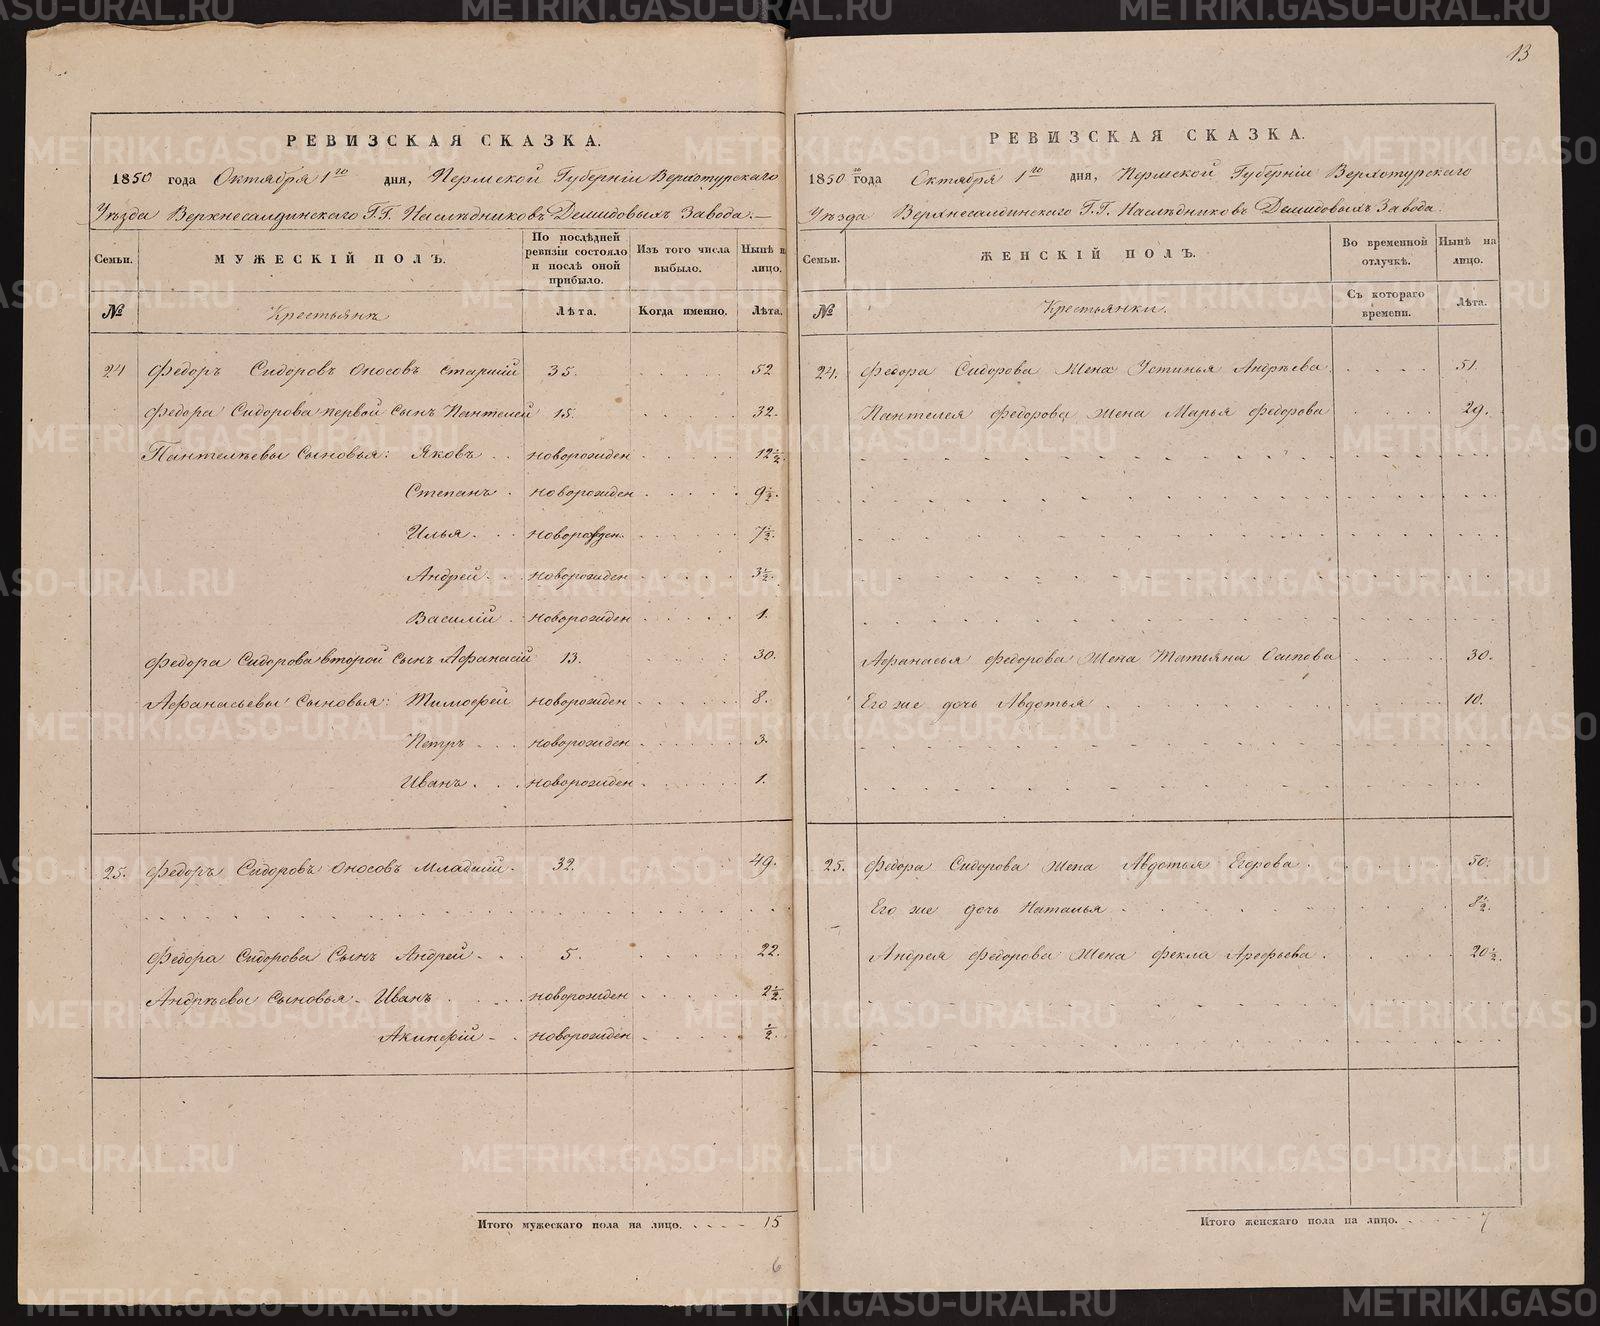 13
РЕВИЗСКАЯ СКАЗКА.
1850 года Октября 1го дня, Пермской Губерніи Верхотурскаго
Уѣзда Верхнесалдинскаго Г.Г. Наслѣдниковъ Демидовыхъ Завода.
Семьи. МУЖЕСКІЙ ПОЛЪ. По послѣдней ревизіи состояло и послѣ оной прибыло. Изъ того числа выбыло. Нынѣ на лицо.
№ Крестьянъ Лѣта. Когда именно. Лѣта.
24 Федоръ Сидоровъ Оносовъ старшій 35. 52
Федора Сидорова первой сынъ Пантелей 15. 32.
Пантелѣевы сыновья: Яковъ новорожден 12½
Степанъ новорожден 9½.
Илья новорожден. 7½.
Андрей новорожден 3½.
Василій новорожден 1.
Федора Сидорова второй сынъ Афанасій 13. 30.
Афанасьевы сыновья: Тимофей новорожден 8.
Петръ новорожден 3.
Иванъ новорожден 1.
25. Федоръ Сидоровъ Оносовъ Младшій. 32. 49.
Федора Сидорова Сынъ Андрей 5. 22.
Андрѣевы Сыновья - Иванъ новорожден 2½.
Акинфій новорожден ½.
Итого мужескаго пола на лицо. 15
6
РЕВИЗСКАЯ СКАЗКА.
1850го года Октября 1го дня, Пермской Губерніи Верхотурскаго
Уѣзда Верхнесалдинскаго Г.Г. Наслѣдниковъ Демидовыхъ Завода.
Семьи. ЖЕНСКІЙ ПОЛЪ. Во временной отлучкѣ. Нынѣ на лицо.
№ Крестьянки. Съ котораго времени. Лѣта.
24. Федора Сидорова Жена Устинья Андрѣева 51.
Пантелея Федорова жена Марья Федорова 29.
Афанасья Федорова Жена Татьяна Осипова 30.
Его же дочь Авдотья 10.
25. Федора Сидорова Жена Авдотья Егорова 50.
Его же дочь Наталья 8½.
Андрея Федорова Жена Фекла Арефьева. 20½.
Итого женскаго пола на лицо. 7
METRIKI.GASO-URAL.RU